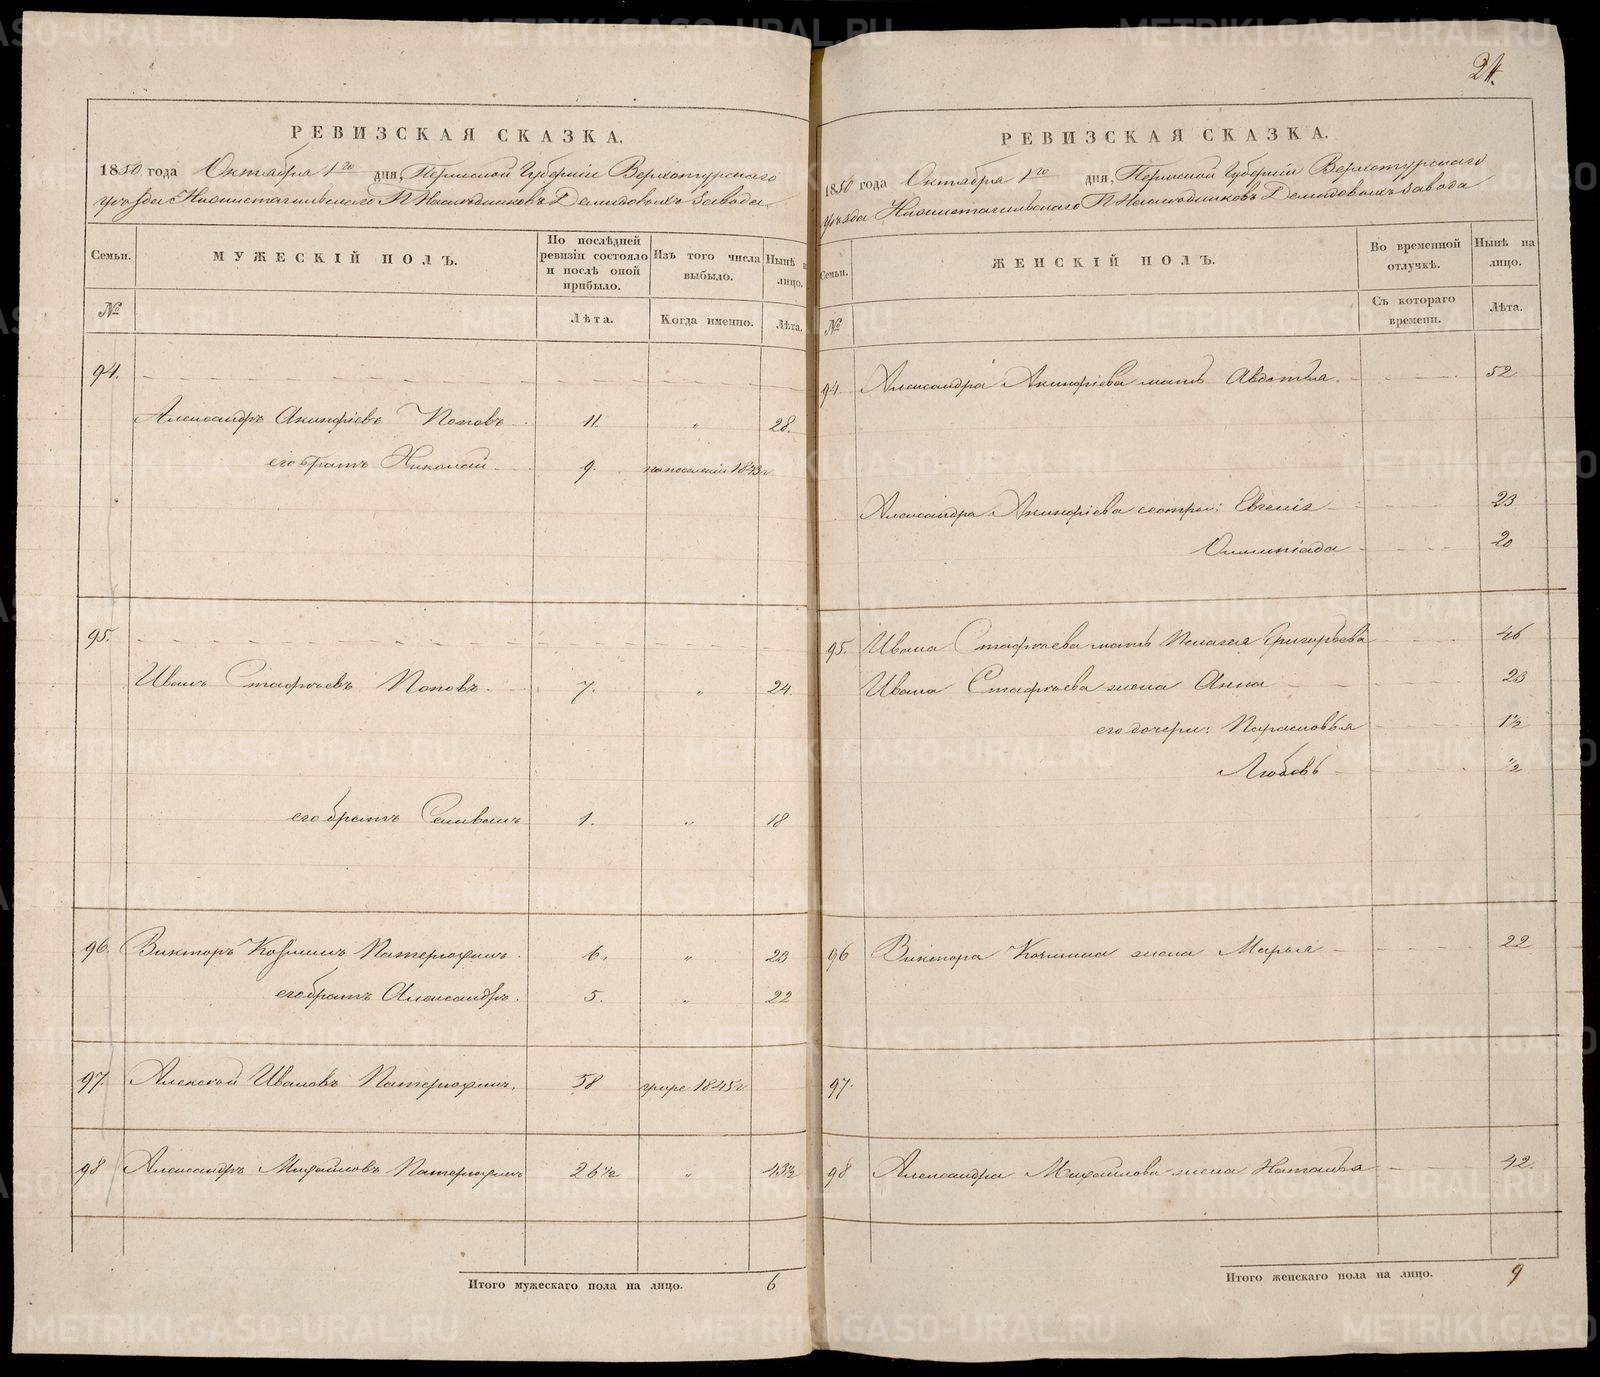 РЕВИЗСКАЯ СКАЗКА.
1850 года Октября 1го дня, Пермской Губернiи Верхотурскаго
уѣзда Нижнетагильскаго Г. Наслѣдниковъ Демидовыхъ завода.
Семьи. МУЖЕСКIЙ ПОЛЪ. По послѣдней ревизiи состояло и послѣ оной прибыло. Изъ того числа выбыло. Нынѣ на лицо.
№ Лѣта. Когда именно. Лѣта.
94.
Александръ Акинфiевъ Поповъ 11. „ 28.
его братъ Николай 9. на поселенiи 1843 г
95.
Иванъ Поповъ 7. „ 24.
его братъ Селиванъ 1. „ 18
96. Викторъ Козминъ 6. „ 23
его братъ Александръ. 5. „ 22
97. Алексѣй Ивановъ 58 умре 1845 г
98 Александръ Михайловъ 26½ „ 43½
Итого мужескаго пола на лицо. 6
24.
РЕВИЗСКАЯ СКАЗКА.
1850 года Октября 1го дня, Пермской Губернiи Верхотурскаго
уѣзда Нижнетагильскаго Г. Наслѣдниковъ Демидовыхъ завода
Семьи. ЖЕНСКIЙ ПОЛЪ. Во временной отлучкѣ. Нынѣ на лицо.
№ Съ котораго времени. Лѣта.
94. Александра Акинфiева мать Авдотья 52
Александра Акинфiева сестры: Евгенiя 23
Олимпiада 20
95. Ивана мать Пелагея Григорьева 46
Ивана жена Анна 23
его дочери: Парасковья 1½
Любовь ½
96 Виктора Козмина жена Марья 22
97.
98 Александра Михайлова жена Наталья 42.
Итого женскаго пола на лицо. 9
METRIKI.GASO-URAL.RU